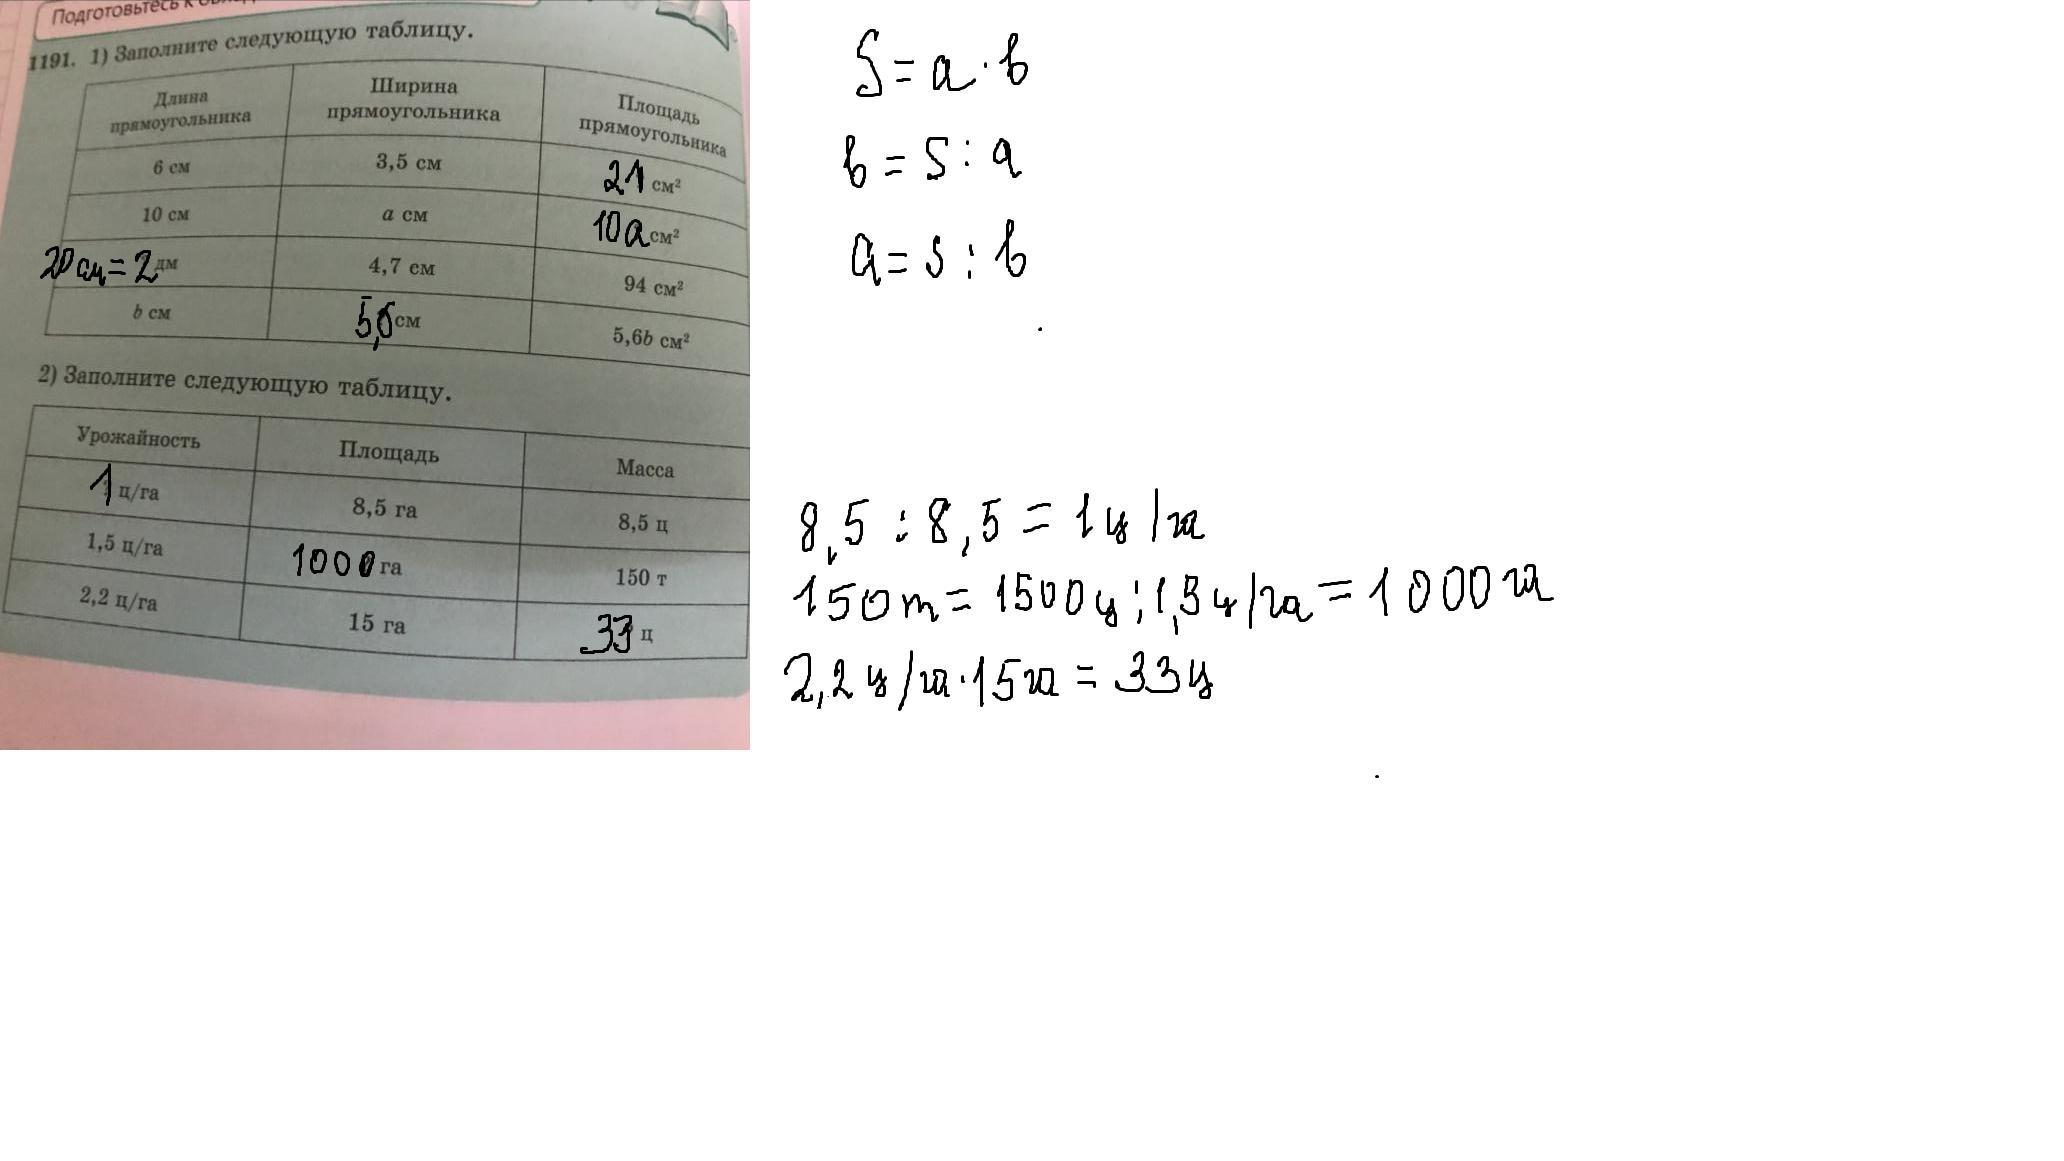 Подготовьтесь к
1191. 1) Заполните следующую таблицу.
Длина прямоугольника Ширина прямоугольника Площадь прямоугольника
6 см 3,5 см 21 см²
10 см a см 10a см²
20 см = 2 дм 4,7 см 94 см²
b см 5,6 см 5,6b см²
2) Заполните следующую таблицу.
Урожайность Площадь Масса
1 ц/га 8,5 га 8,5 ц
1,5 ц/га 1000 га 150 т
2,2 ц/га 15 га 33 ц
S = a · b
b = S : a
a = S : b
8,5 : 8,5 = 1 ц/га
150 т = 1500 ц : 1,5 ц/га = 1000 га
2,2 ц/га · 15 га = 33 ц